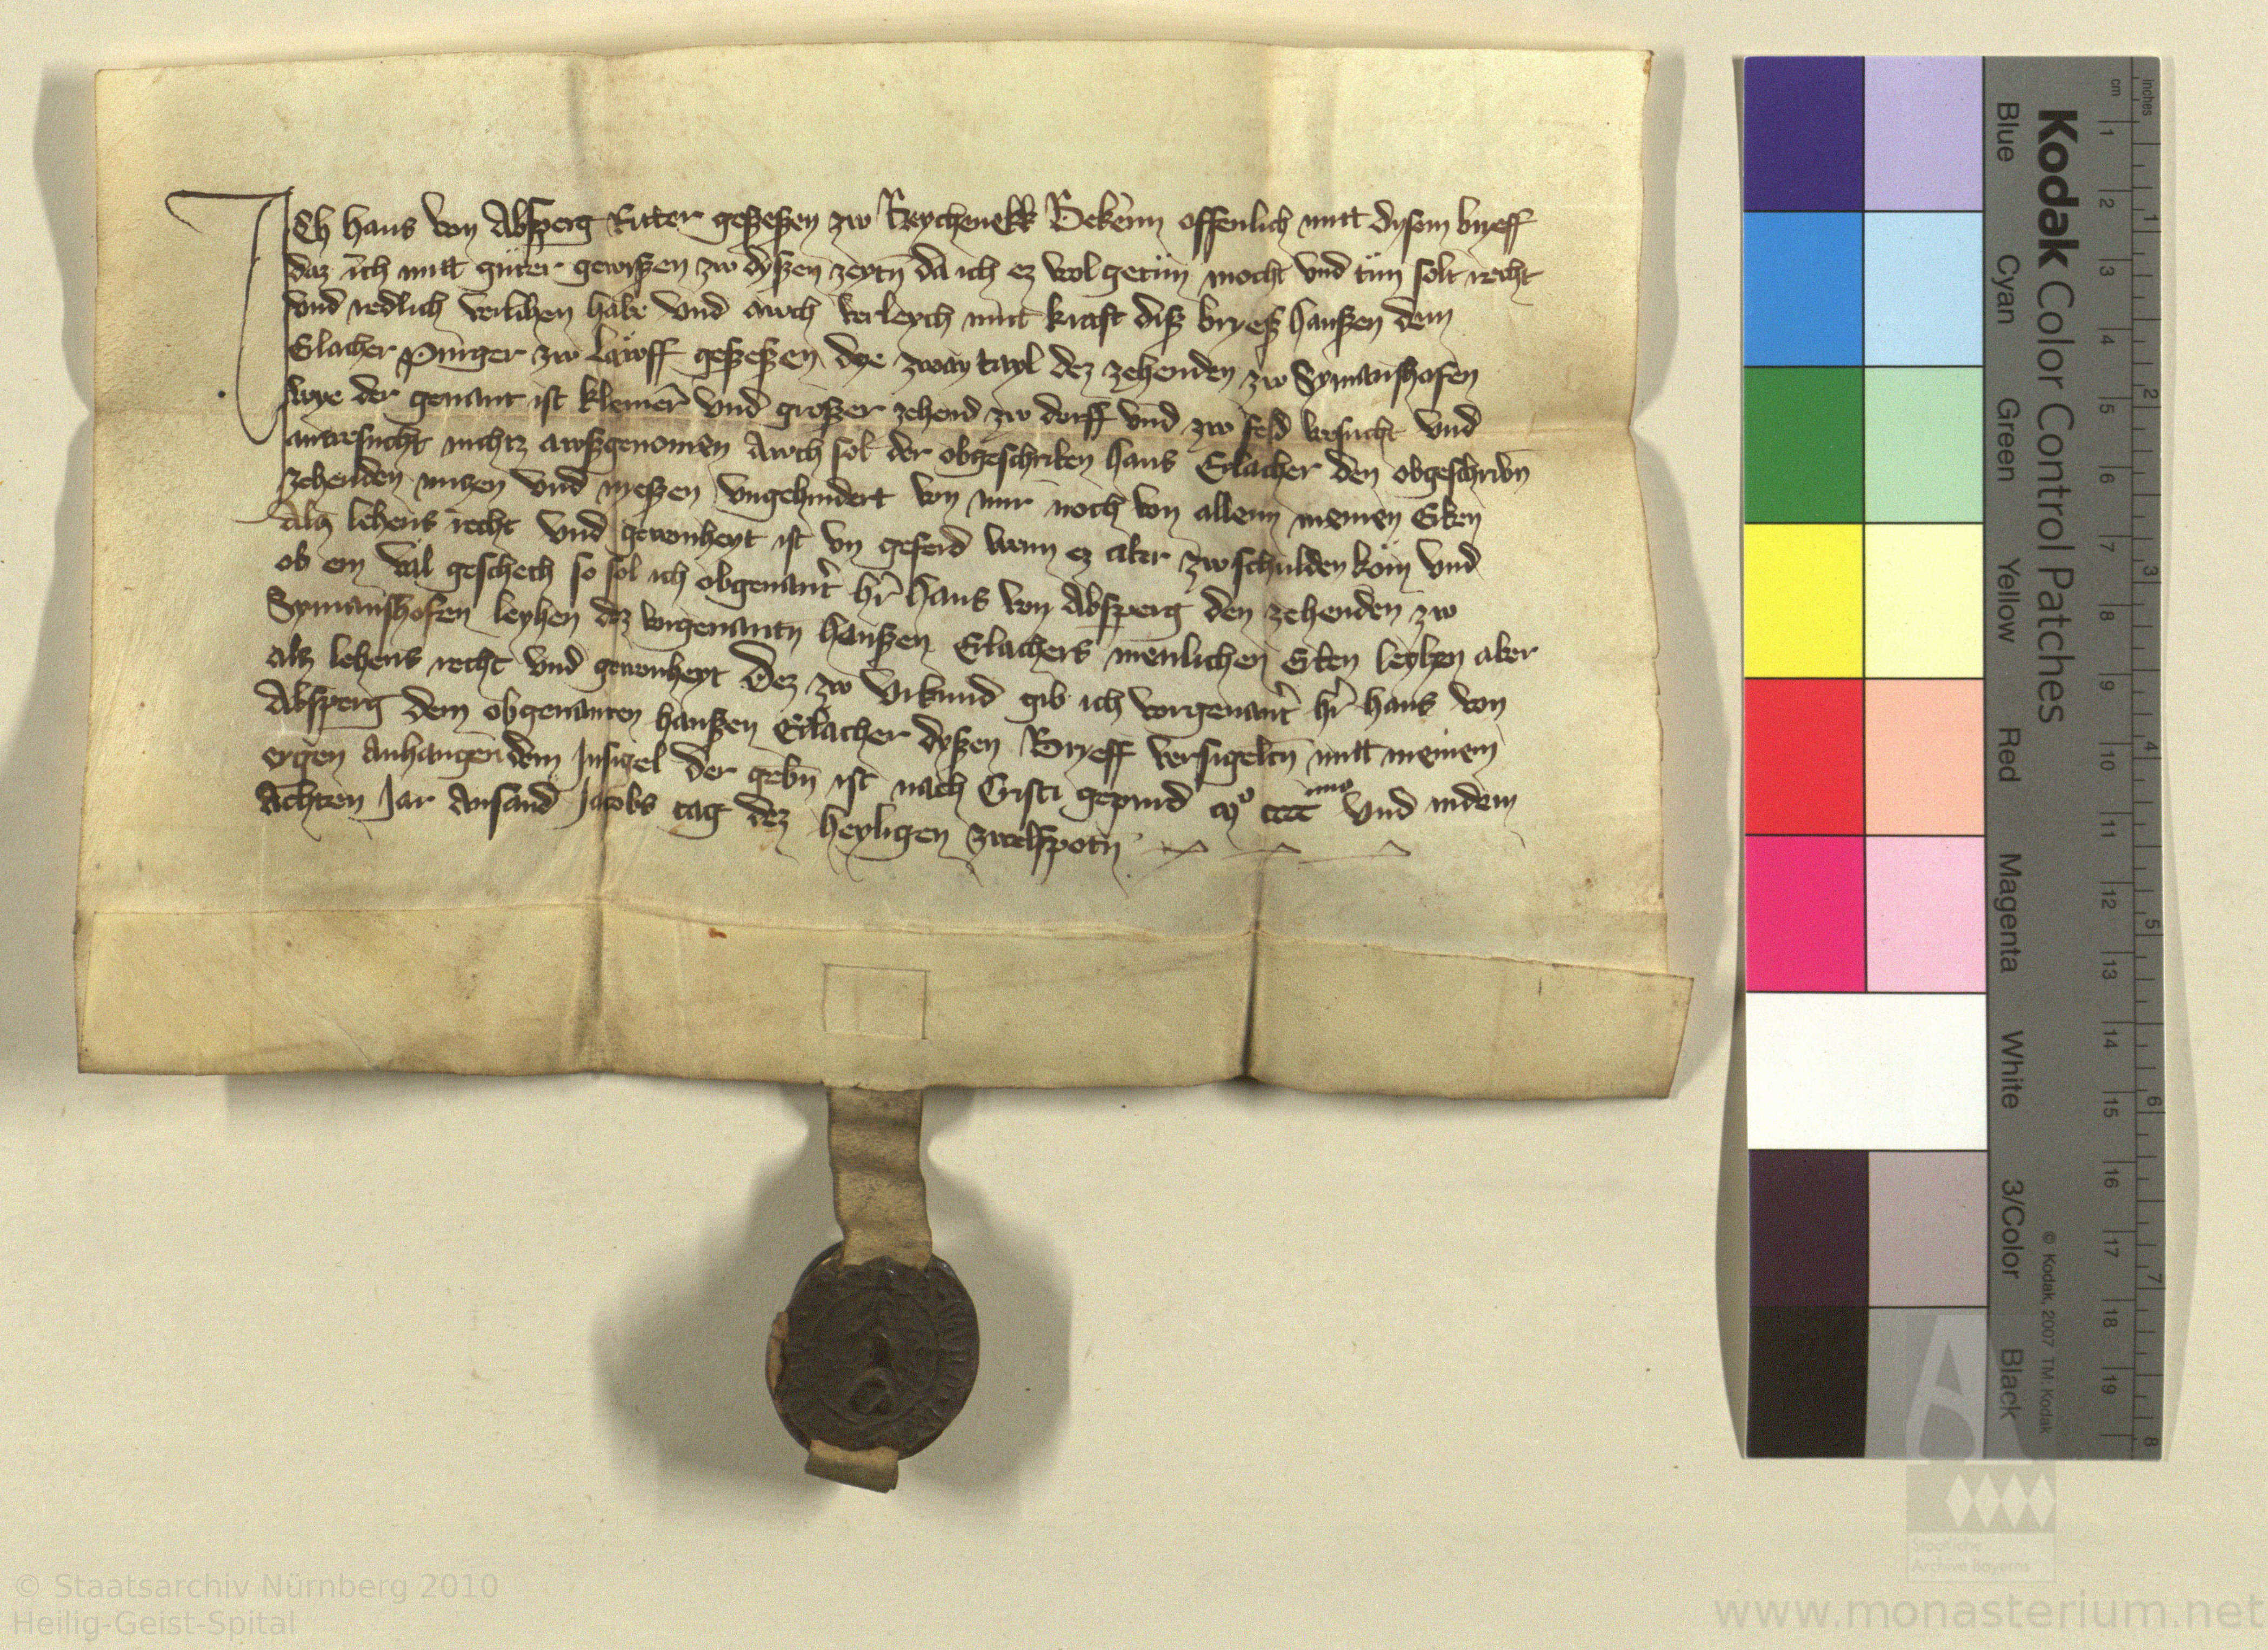 ICh hans von Absperg Ritter geseßen zw Reychenekk Bekenn offenlich mitt dysem bryeff
daz ich mitt güter gewißen zw dyßen zeytn da ich ez wol getün mocht vnd tün solt recht
vnd redlich verlihen habe vnd awch verleych mitt kraft diß bryeß hanßen dem
Erlacher Purger zw Lawff geseßen dye zway tayl dez zehenden zw Symanshofen
wye der genant ist kleiner vnd großer zehend zw dorff vnd zw feld besucht vnd
vnbesucht nichtz awßgenomen Awch sol der obgeschriben hans Erlacher den obgeschribn
zehenden nutzen vnd nyeßen vngehindert von mir noch von allenn meinen Erben
Alz lehens recht vnd gewonheyt ist vn geferd wenn ez aber zw schulden köm vnd
ob ein väl geschech so sol ich obgenantr hr hans von Absperg den zehenden zw
Symanshofen leyhen dez vorgenantn hanßen Erlachers menlichen Erben leyhen aber
alz lehens recht vnd gewonheyt Dez zw Vrkund gib ich vorgenantr hr hans von
Absperg dem obgenanten hanßen Erlacher dyßen Bryeff versigeltn mitt meinem
eygen Anhangendem Insigel der gebn ist nach Cristi gepurd Mo cccc und indem
Achten Jar Ansand Jacobs tag dez heyligen zwelfpotn
Kodak Color Control Patches
Blue Cyan Green Yellow Red Magenta White 3/Color Black
© Kodak, 2007 TM: Kodak
cm 1 2 3 4 5 6 7 8 9 10 11 12 13 14 15 16 17 18 19
inches 1 2 3 4 5 6 7 8
Staatliche
Archive Bayerns
© Staatsarchiv Nürnberg 2010
Heilig-Geist-Spital
www.monasterium.net